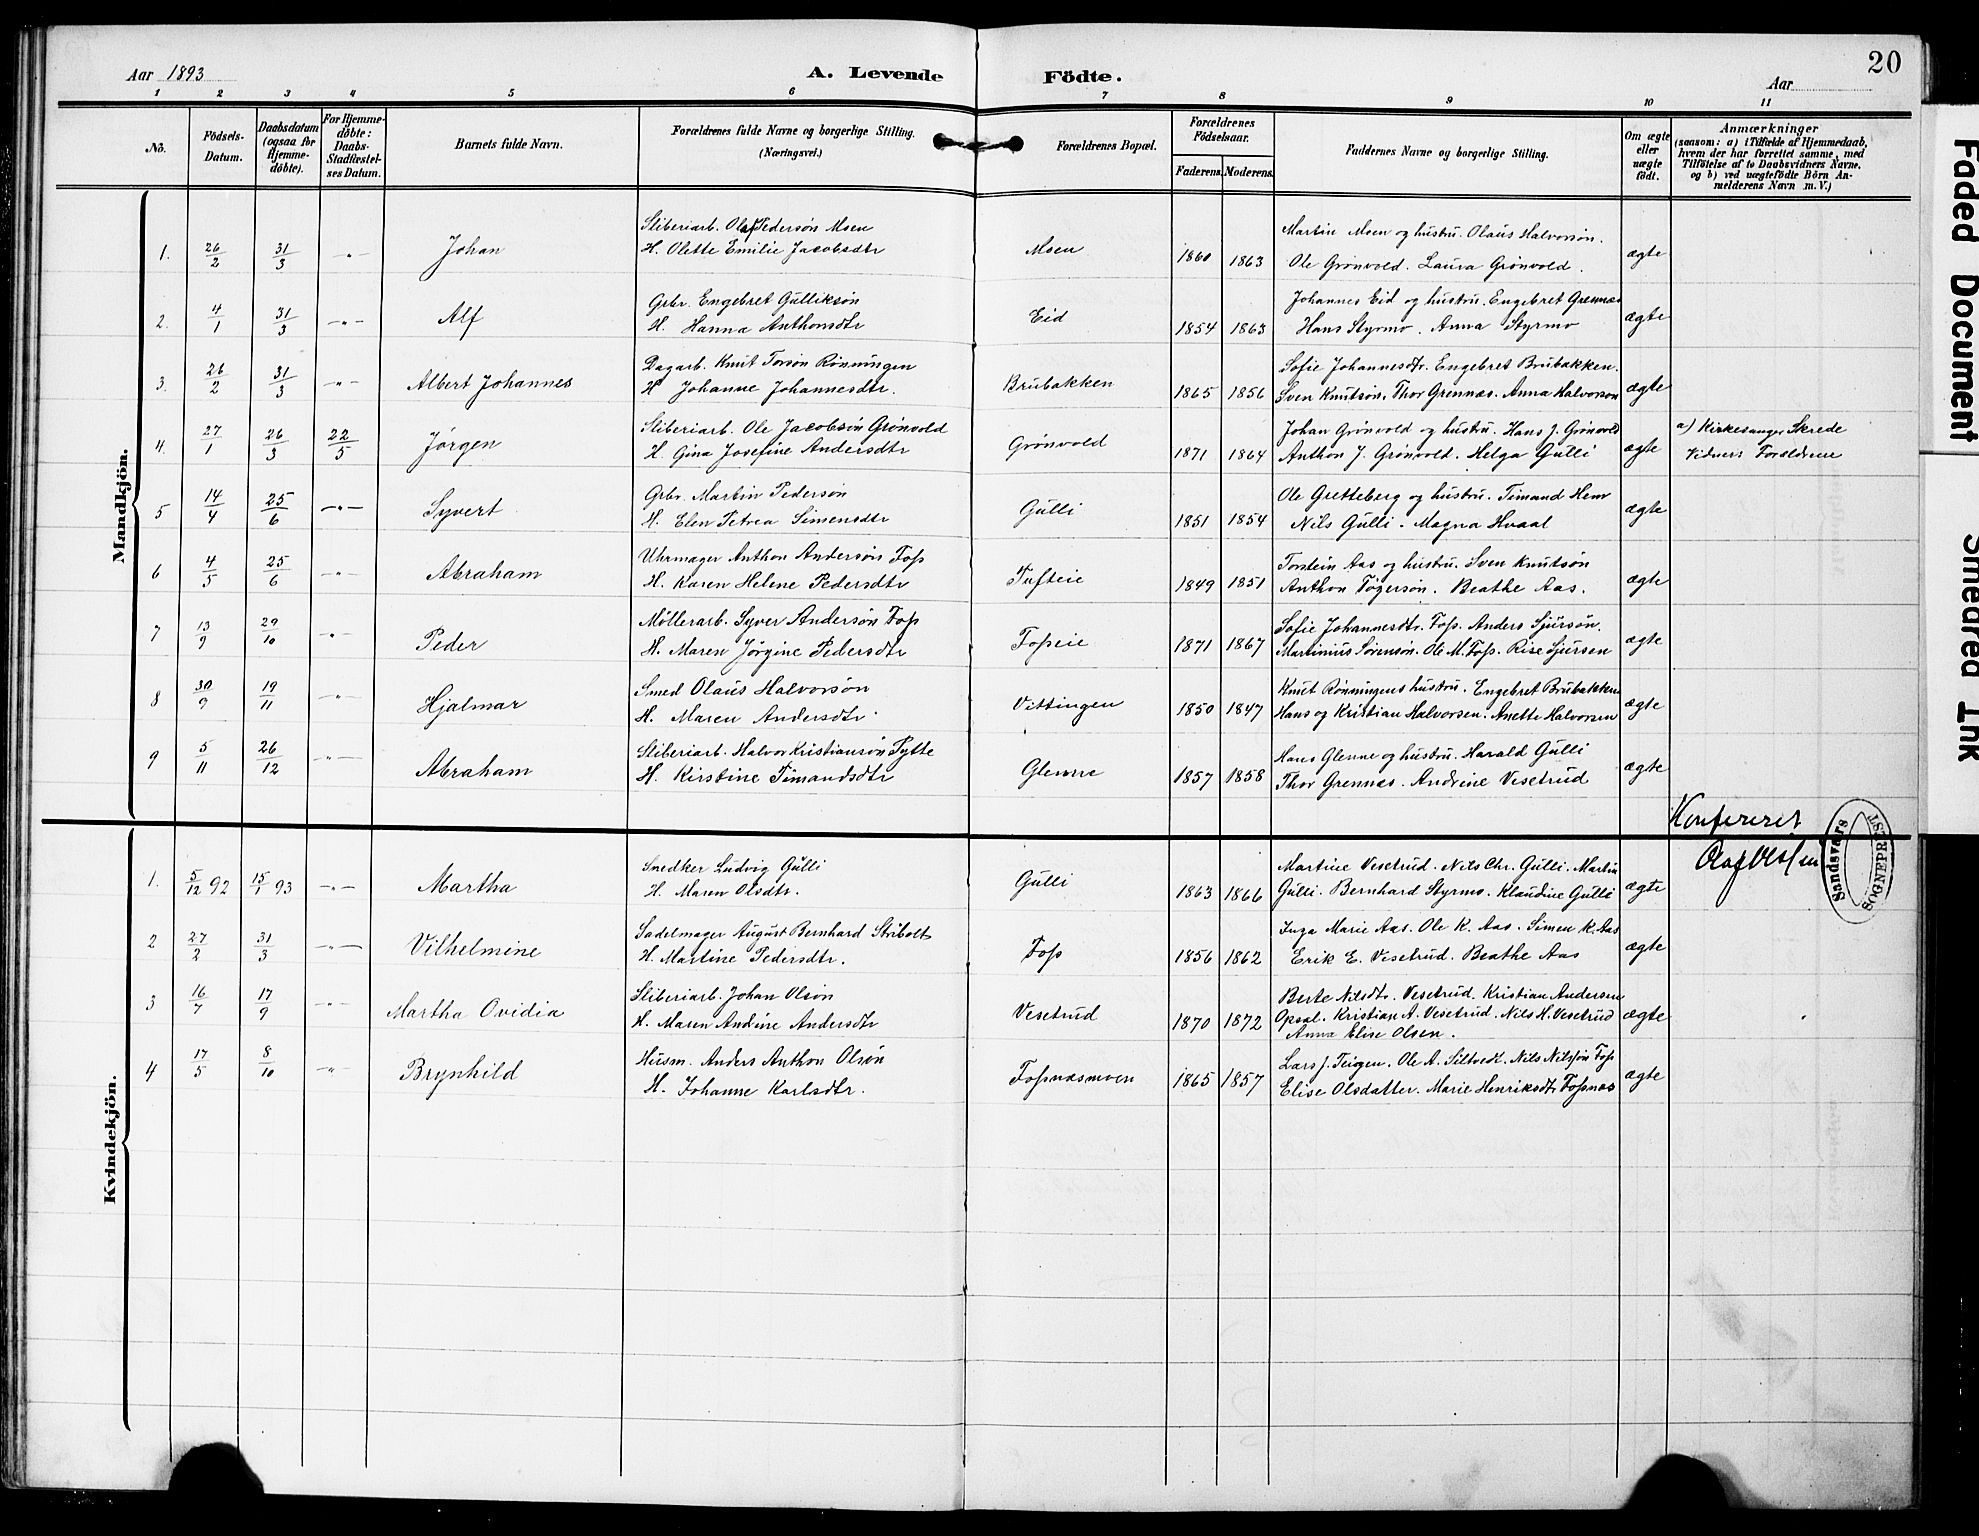 20
Aar 1893
A. Levende Födte.
Aar
1 2 3 4 5 6 7 8 9 10 11
No.
Födsels-Datum.
Daabsdatum (ogsaa for Hjemme-döbte).
For Hjemme-döbte: Daabs-Stadfæstel-ses Datum.
Barnets fulde Navn.
Forældrenes fulde Navne og borgerlige Stilling. (Næringsvei.)
Forældrenes Bopæl.
Forældrenes Födselsaar.
Faderens. Moderens.
Faddernes Navne og borgerlige Stilling.
Om ægte eller uægte födt.
Anmærkninger
(saasom: a) i Tilfælde af Hjemmedaab,
hvem der har forrettet samme, med
Tilföielse af to Daabsvidners Navne,
og b) ved uægtefödte Börn An-
melderens Navn m. V.)
Mandkjön.
Sliberiarb. Olaf Pedersön Moen
Martin Moen og hustru. Olaus Halvorsön.
1. 26/2 31/3 -"- Johan H. Olette Emilie Jacobsdtr Moen 1860 1863 Ole Grönvold. Laura Grönvold. ægte
Grbr. Engebret Gulliksön
Johannes Eid og hustru. Engebret Grennæs
2. 4/1 31/3 -"- Alf H. Hanna Anthonsdtr Eid 1854 1863 Hans Styrmo. Anna Styrmo ægte
Dagarb. Knut Torsön Rönningen
Sofie Johannesdtr. Engebret Brubakken.
3. 26/2 31/3 -"- Albert Johannes H Johanne Johannesdtr. Brubakken 1865 1856 Sven Knutsön. Thor Grennæs. Anna Halvorsön ægte
Sliberiarb. Ole Jacobsön Grönvold
Johan Grönvold og hustru. Hans J. Grönvold
a) Kirkesanger Skrede
4. 27/1 26/3 22/5 Jörgen H. Gina Josefine Andersdtr Grönvold 1871 1864 Anthon J. Grönvold. Helga Gulli ægte Vidner: Forældrene
Grbr. Martin Pedersön
Ole Gretteberg og hustru. Timand Hem
5 14/4 25/6 -"- Syvert H. Elen Petrea Simensdtr Gulli 1851 1854 Nils Gulli. Magna Hvaal ægte
Uhrmager Anthon Andersön Foss
Torstein Aas og hustru. Sven Knutsön
6 4/5 25/6 -"- Abraham H. Karen Helene Pedersdtr Tufteie 1849 1851 Anthon Tögersön. Beathe Aas. ægte
Möllerarb. Syver Andersön Foss
Sofie Johannesdtr. Foss. Anders Sjursön.
7 13/9 29/10 -"- Peder H. Maren Jörgine Pedersdtr Fosseie 1871 1867 Martinius Sörensön. Ole M. Foss. Rise Sjursen ægte
Smed Olaus Halvorsön
Knut Rönningens hustru. Engebret Brubakken
8 30/9 19/11 -"- Hjalmar H. Maren Andersdtr. Vittingen 1850 1847 Hans og Kristian Halvorsen. Anette Halvorsen ægte
Sliberiarb. Halvor Kristiansön Tytte
Hans Glenne og hustru. Harald Gulli
9 5/11 26/12 -"- Abraham H. Kirstine Timandsdtr Glenne 1857 1858 Thor Grennæs. Andrine Vesetrud ægte
Konfereret
Olaf Olsen
Sandsværs SOGNEPREST
Kvindekjön.
Snedker Ludvig Gulli
Martine Vesetrud. Nils Chr. Gulli. Martin
1. 5/12 92 15/1 93 -"- Martha H. Maren Olsdtr. Gulli 1863 1866 Gulli. Bernhard Styrmo. Klaudine Gulli ægte
Sadelmager August Bernhard Stribolt
Inga Marie Aas. Ole K. Aas. Simen K. Aas
2 27/2 31/3 -"- Vilhelmine H. Martine Pedersdtr. Foss 1856 1862 Erik E. Vesetrud. Beathe Aas ægte
Sliberiarb. Johan Olsön
Berte Nilsdtr. Vesetrud. Kristian Andersen
3 16/7 17/9 -"- Martha Ovidia H. Maren Andrine Andersdtr Vesetrud 1870 1872 Opsal. Kristian A. Vesetrud. Nils H. Vesetrud ægte
Anna Elise Olsen.
Husm. Anders Anthon Olsön
Lars J. Teigen. Ole A. Siltvedt. Nils Nilssön Foss
4 17/5 8/10 -"- Brynhild H. Johanne Karlsdtr. Fossnæsmoen 1865 1857 Elise Olsdatter. Marie Henriksdtr Fossnæs ægte
Faded Document
Smeared Ink